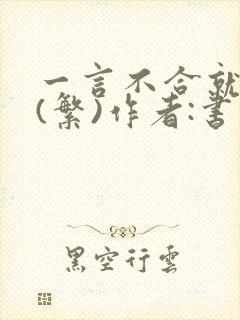 一言不合就
(繁)作者:書
黑空行雲